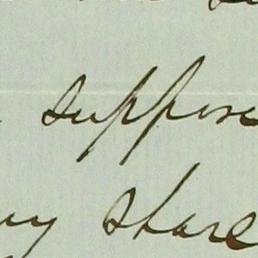 suppose
my share